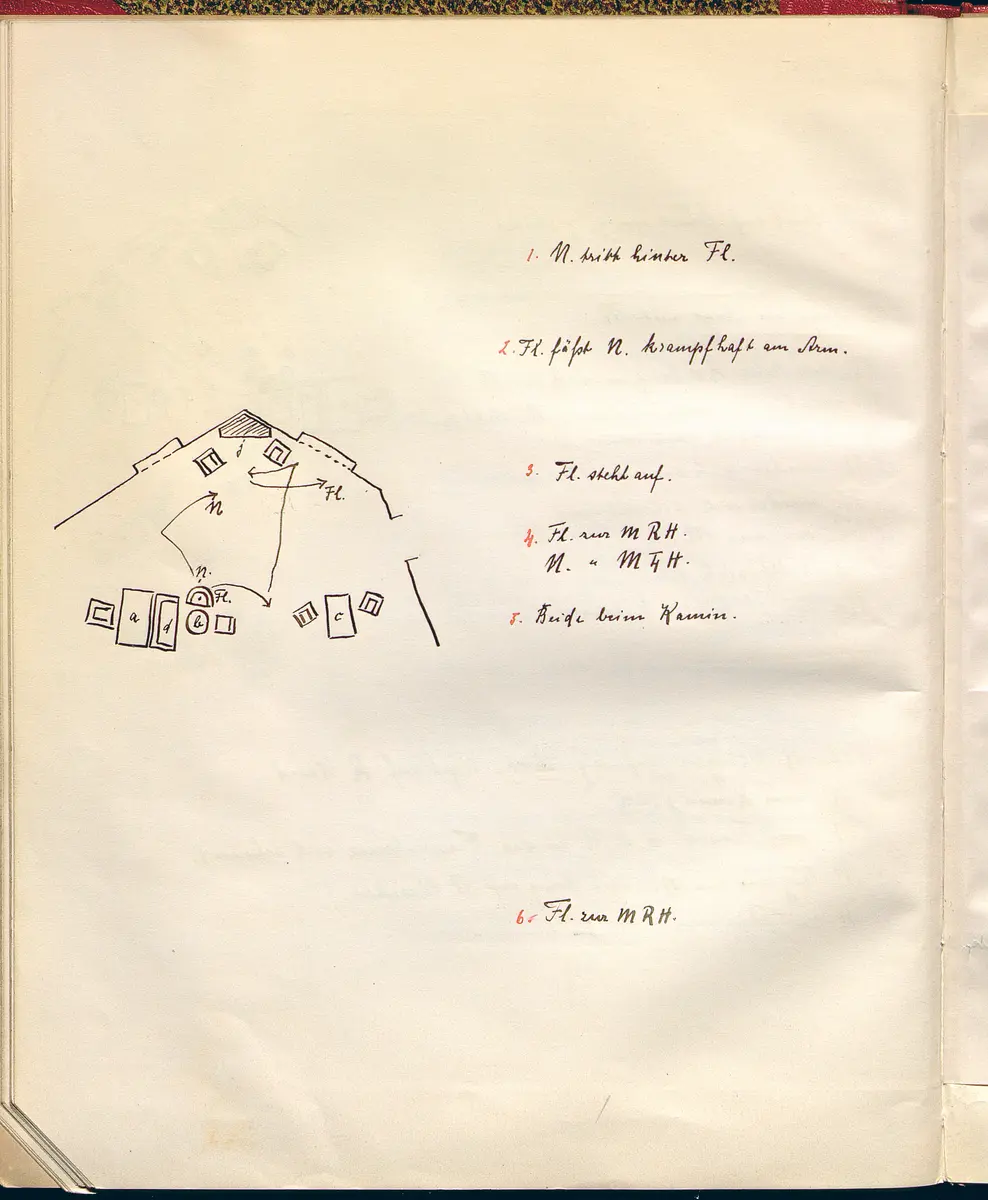 1. N. tritt hinter Fl.
2. Fl. fäßt N. krampfhaft am Arm.
3. Fl. steht auf.
4. Fl. zur M R H.
N. " M L H.
5. Beide beim Kamin.
6. Fl. zur M R H.
j
Fl.
N
N.
Fl.
a
d
b
c